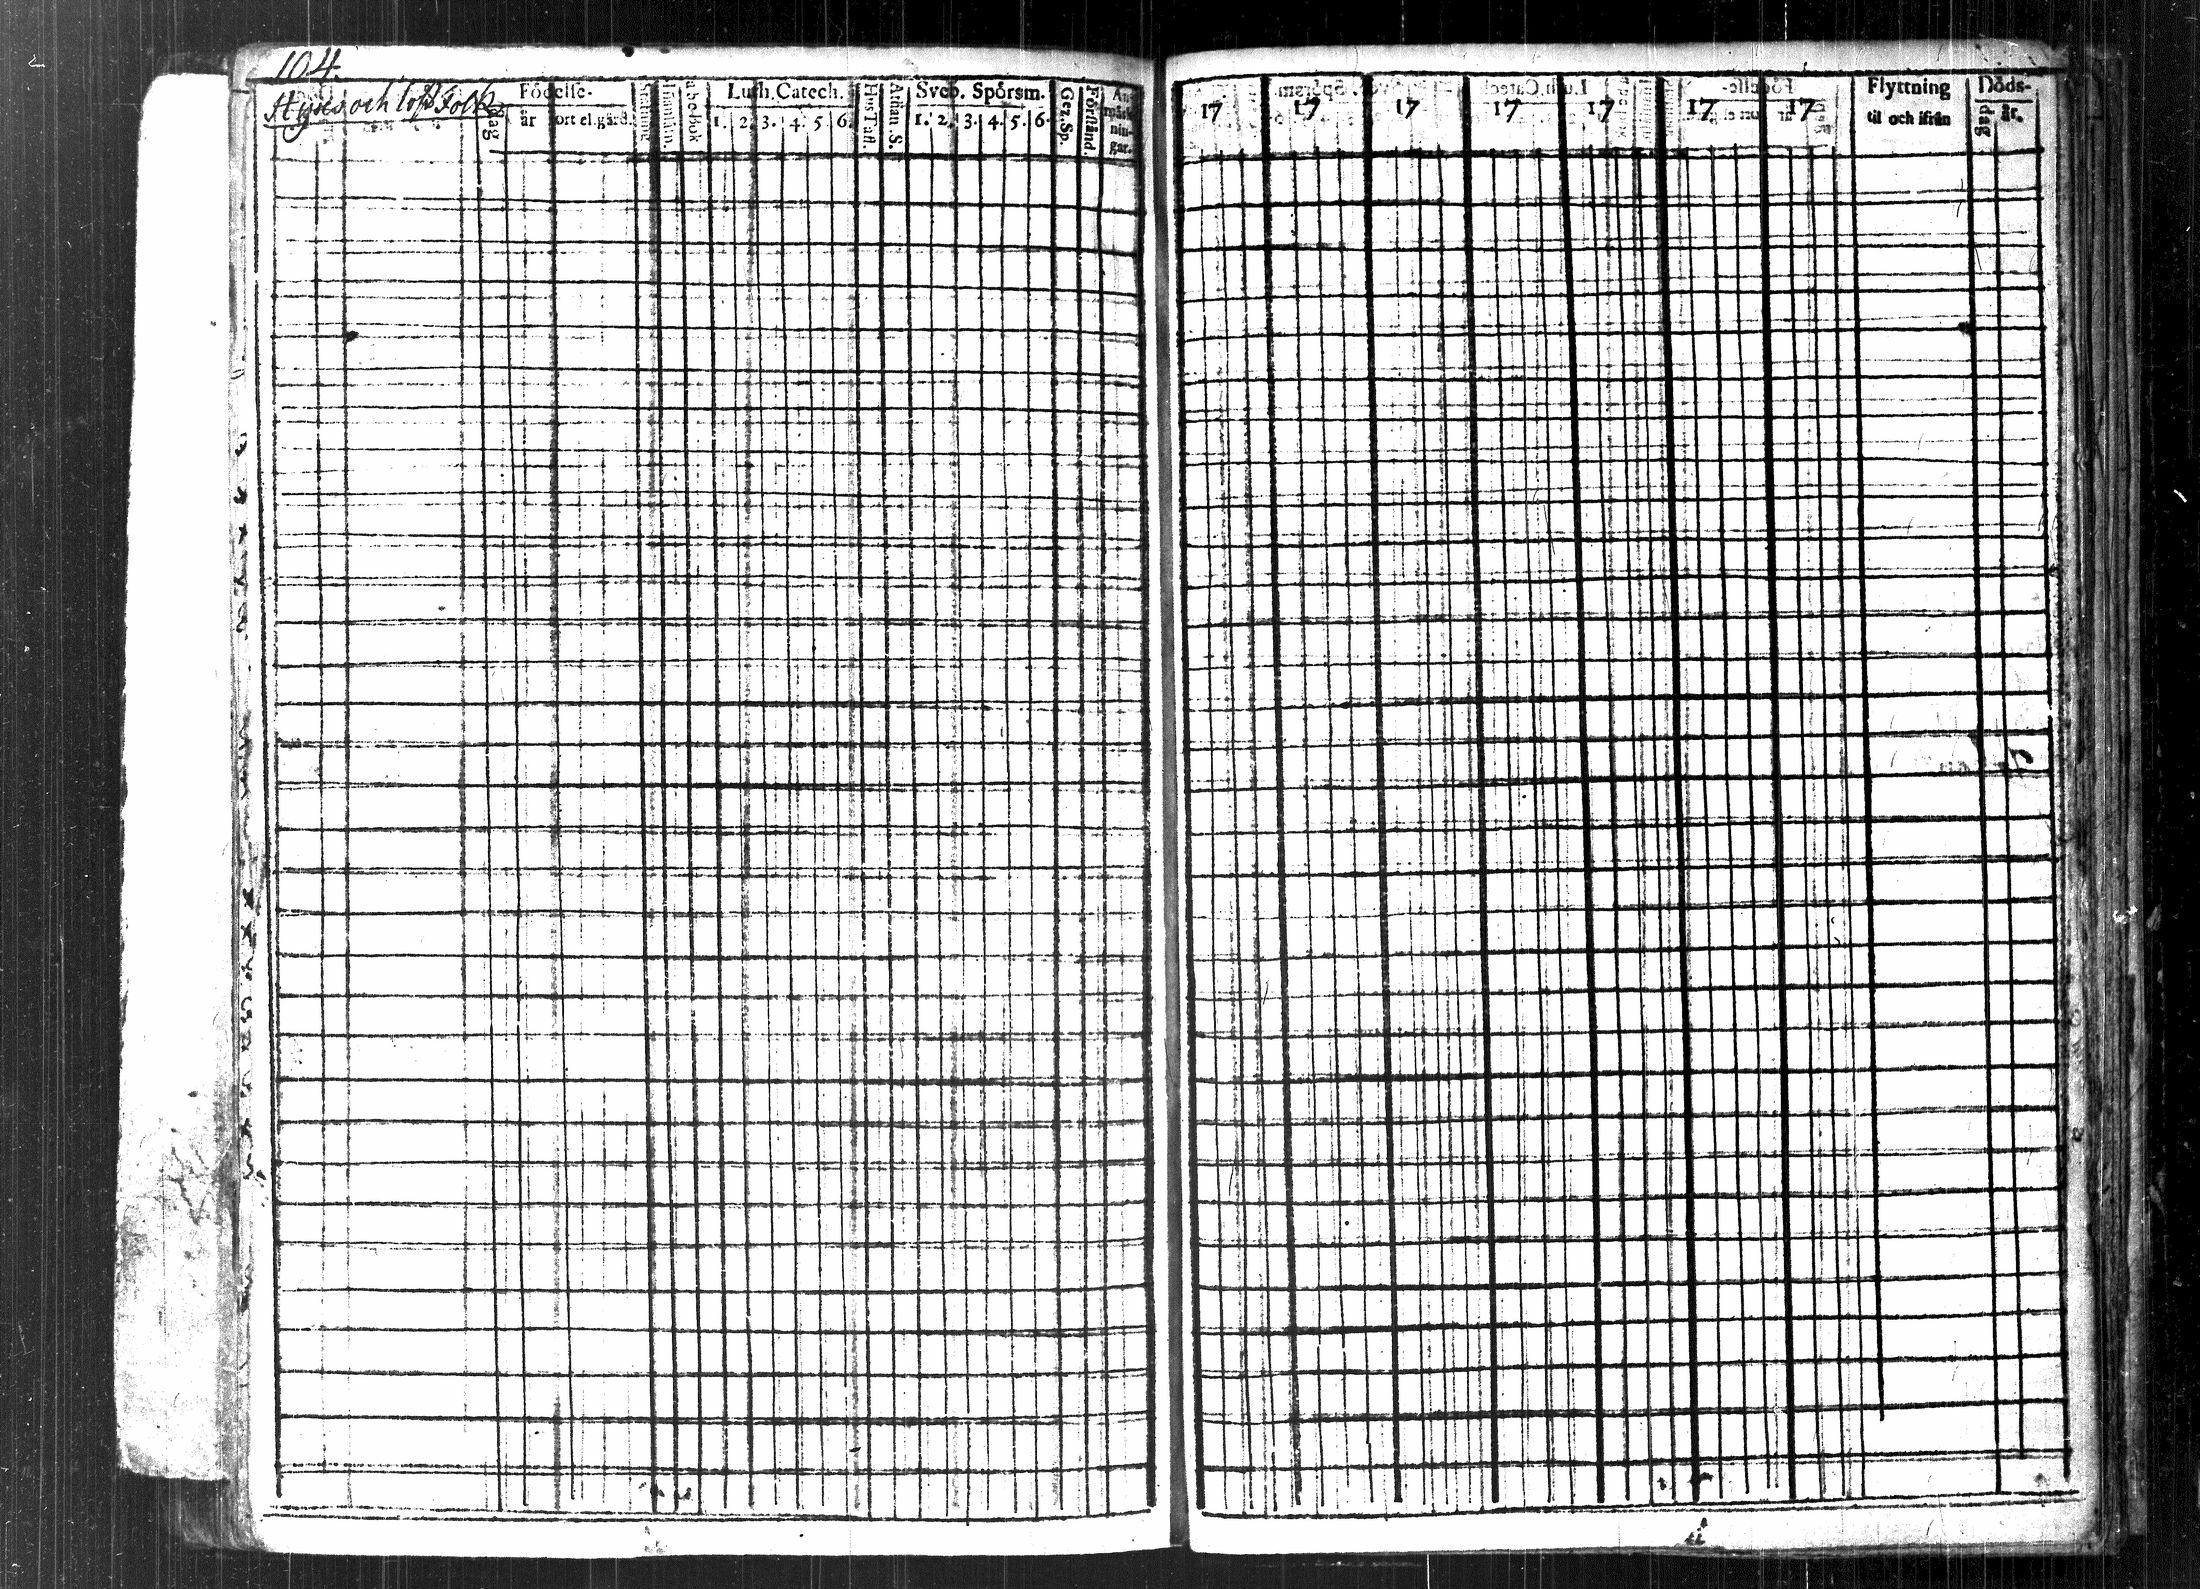 104.
Hyses och löst Folk
Födelse-
dag
år
ort el. gård.
abc-bok
Luth. Catech.
1. 2. 3. 4. 5. 6.
Hus Tafl.
Athan. S.
Sveb. Spörsm.
1. 2. 3. 4. 5. 6.
Gez. Sp.
Förstånd.
An-
märk-
nin-
gar.
17 17 17 17 17 17 17
Flyttning
til och ifrån
Döds-
dag
år.